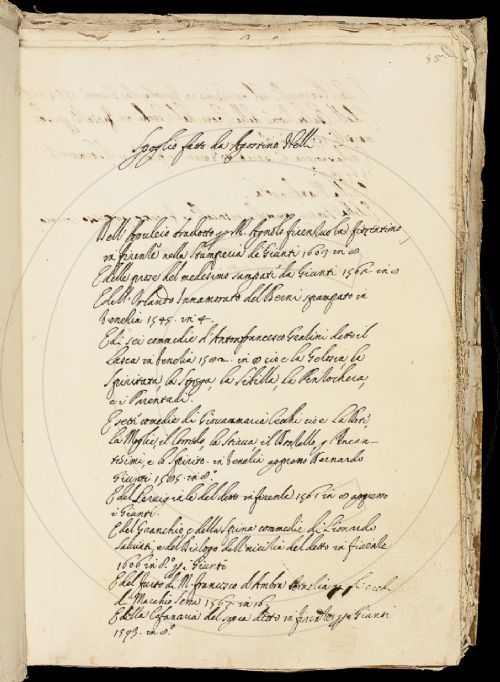 45
Spoglio fatto da Agostino Nelli
Dell'Apuleio tradotto p M. Agnolo firenzuola fiorentino
in firenze nella stamperia de Giunti 1603 in 8
E delle prose del medesimo stampati da Giunti 1562 in 8
E dell'Orlando Innamorato del Berni stampato in
Venetia 1545. in 4.
E di sei commedie d'Antonfrancesco Grazini detto il
Lasca in Venetia 1582. in 8 cioe la Gelosia la
spiritata, la strega, la sibilla, la Pinzochera,
e i Parentadi.
E sette comedie di Giovammaria Cecchi cioe la Dote,
la Moglie, il Corredo, la stiava il Donzello, gl' Incan-
tesimi, e lo spirito. in Venetia appresso Bernardo
Giunti 1585. in 8.
E del Servigiale del detto in firenze 1561 in 8 appresso
i Giunti.
E del Granchio e della spina commedie di Lionardo
salviati, e del Dialogo dell'amicizia del detto in firenze
1606 in 8. pp. i Giunti
E del furto di M. francesco d'Ambra
di Marchi sessa 1567. in
E della Cofanaria del sopra detto in firenze pp. i Giunti
1593. in 8.